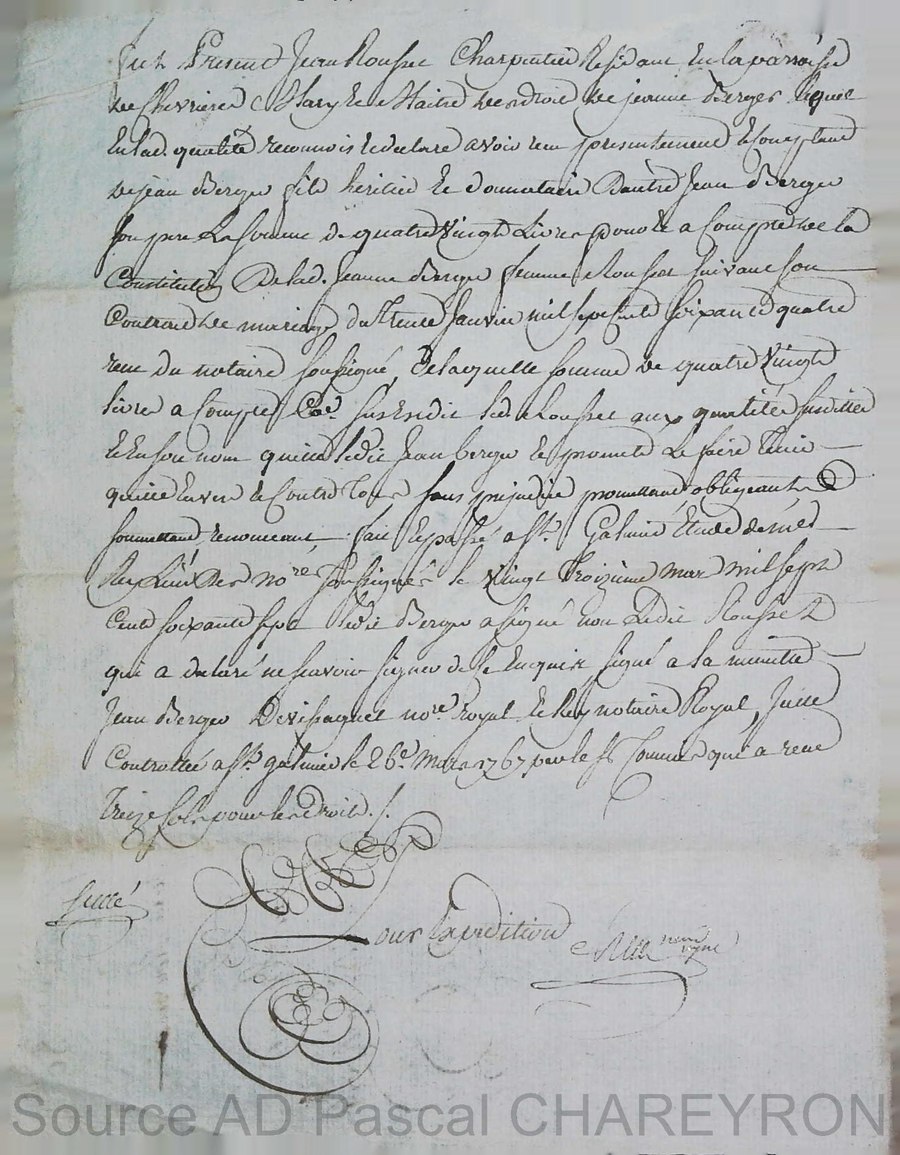 fut Present Jean Rousset Charpentier Residant En la parroisse
de Chevrieres Mary et Maitre des droits de jeanne Berger lequel
En lad. qualité reconnois et declare avoir reçu presentement et Comptant
de jean Berger fils heritier et donnataire D'autre Jean Berger
son pere La somme de quatre Vingt Livres pour et a Compte de la
Constitution De lad. Jeanne Berger femme Rousset suivant son
Contract de mariage du trente Janvier mil sept Cents soixante quatre
recu du notaire soussigné, de laquelle somme de quatre Vingt
livres a Compte led. Rousset aux qualités susdittes
et En son nom quitte ledit Jean berger et promets Le faire tenir
quitte Envers et Contre tous sans prejudice promettant obligeant
soumettant renonceant fait et passé a St. Galmier Etude de
no.re soussignés le Vingt troizieme mars mil sept
Cents soixante sept ledit Berger a signé non Ledit Rousset
qui a declaré ne scavoir signer de ce Enquis signé a la minutte
Jean Berger Devissaguet no.re royal et Rey notaire Royal, Juste
Controllé a St. galmier le 26.e Mars 1767 par le Sr. Commis qui a recu
treize sols pour les Droits ./.
Pour Expedition